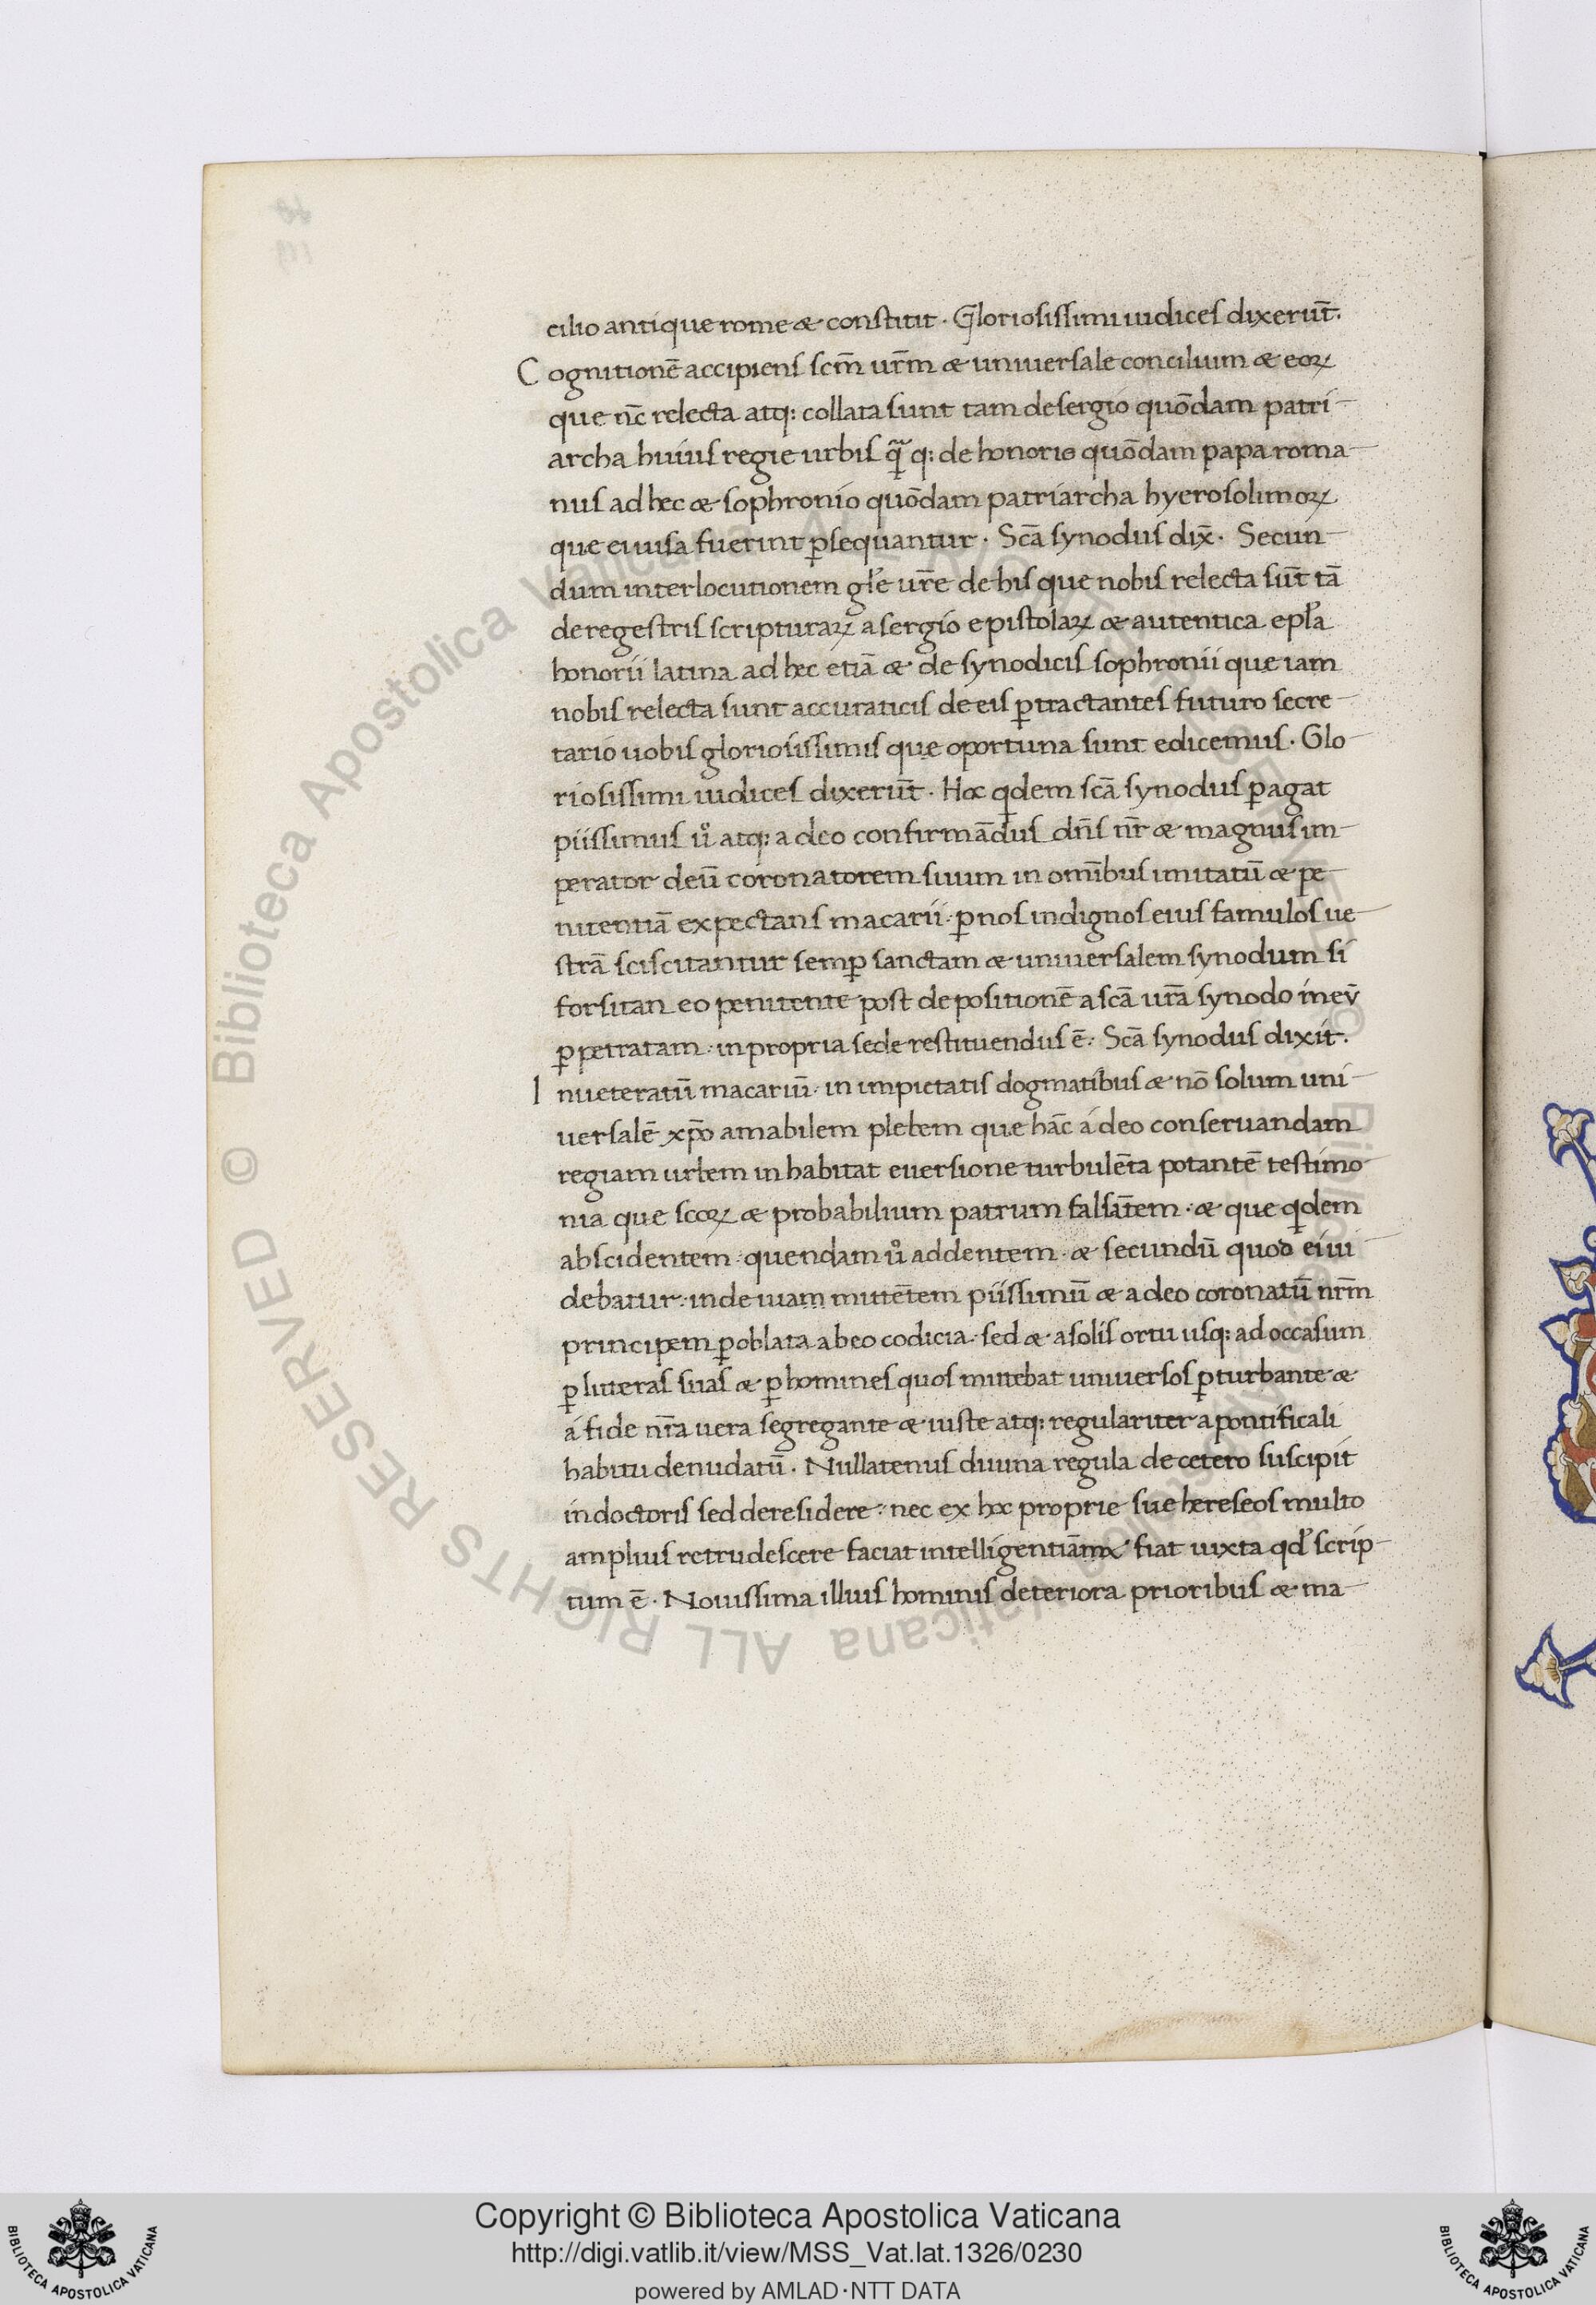 cilio antique rome & constitit · Gloriosissimi iudices dixerūt·
Cognitionē accipiens scm̄ ur̄m & universale concilium & eoꝝ
que nc̄ relecta atq: collata sunt tam de sergio quōdam patri-
archa huius regie urbis q̄q: de honorio quōdam papa roma-
nus ad hec & sophronio quōdam patriarcha hyerosolimoꝝ
que ei uisa fuerint ꝑsequantur · Scā synodus dix̄ · Secun-
dum interlocutionem głe ur̄e de his que nobis relecta sūt tā
de regestris scripturaꝝ a sergio epistolaꝝ & autentica epła
honorii latina ad hec etiā & de synodicis sophronii que iam
nobis relecta sunt accuraticis de eis ꝑtractantes futuro secre-
tario uobis gloriosissimis que oportuna sunt edicemus · Glo-
riosissimi iudices dixerūt · Hoc qdem scā synodus ꝑagat
piissimus uͦ atq: a deo confirmādus dn̄s nr̄ & magnus im-
perator deū coronatorem suum in omībus imitatū & pe-
nitentiā expectans macarii · ꝑ nos indignos eius famulos ue-
strā sciscitantur semꝑ sanctam & universalem synodum si
forsitan eo penitente post depositionē a scā ur̄a synodo in eū
ꝑpetratam · in propria sede restituendus ē · Scā synodus dixit·
Inueteratū macariū · in impietatis dogmatibus & nō solum uni-
uersalē xp̄o amabilem plebem que hāc á deo conseruandam
regiam urbem inhabitat euersione turbulēta potantē testimo-
nia que scoꝝ & probabilium patrum falsātem · & que qdem
abscidentem · quendam uͦ addentem · & secundū quod ei ui-
debatur · inde uiam mittētem piissimū & a deo coronatū nr̄m
principem ꝑ oblata ab eo codicia · sed & a solis ortu usq: ad occasum
ꝑ litteras suas & ꝑ homines quos mittebat universos ꝑturbante &
á fide nr̄a uera segregante & iuste atq: regulariter a pontificali
habitu denudatū · Nullatenus diuina regula de cetero suscipit
in doctoris sed de residere · nec ex hoc proprie sue hereseos multo
amplius retrudescere faciat intelligentiām & fiat iuxta qd̓ scrip-
tum ē · Nouissima illius hominis deteriora prioribus & ma-
Copyright © Biblioteca Apostolica Vaticana
http://digi.vatlib.it/view/MSS_Vat.lat.1326/0230
powered by AMLAD·NTT DATA
BIBLIOTECA APOSTOLICA VATICANA
BIBLIOTECA APOSTOLICA VATICANA
© Biblioteca Apostolica Vaticana ALL RIGHTS RESERVED
© Biblioteca Apostolica Vaticana ALL RIGHTS RESERVED